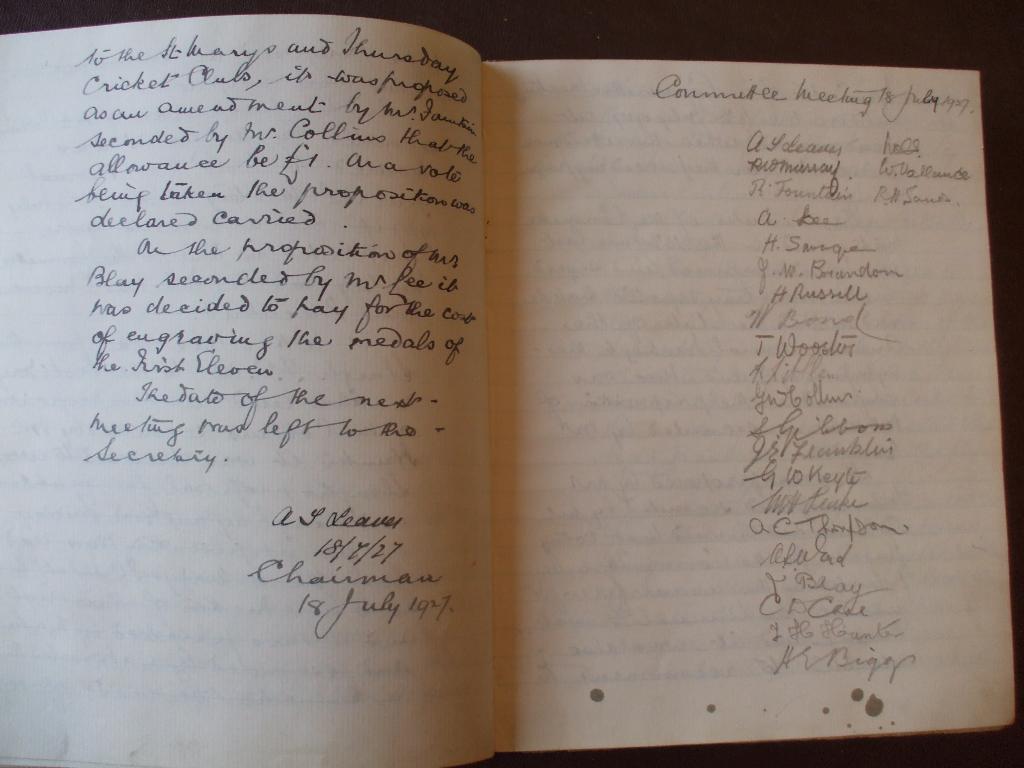 to the St Marys and Thursday
Cricket Clubs, it was proposed
as an amendment by Mr. Fountain
seconded by Mr. Collins that the
allowance be £1. On a vote
being taken the proposition was
declared carried.
On the proposition of Mr
Blay seconded by Mr Lee it
was decided to pay for the cost
of engraving the medals of
the First Eleven
The date of the next-
meeting was left to the -
Secretary.
A S Leaver
18/7/27
Chairman
18 July 1927.
Committee Meeting 18 July 1927.
A S Leaver
Murray.
R. Fountain
A. Lee
H.
J. W. Brandom
H Russell
W Bond
T Wooster
G W Collins
S Gibbons
J E Franklin
G W Keyte
A C Thompson
A Ward
J Blay
C D Case
J H Hunt
H E Biggs
W. Vallance
R. H. Janes.